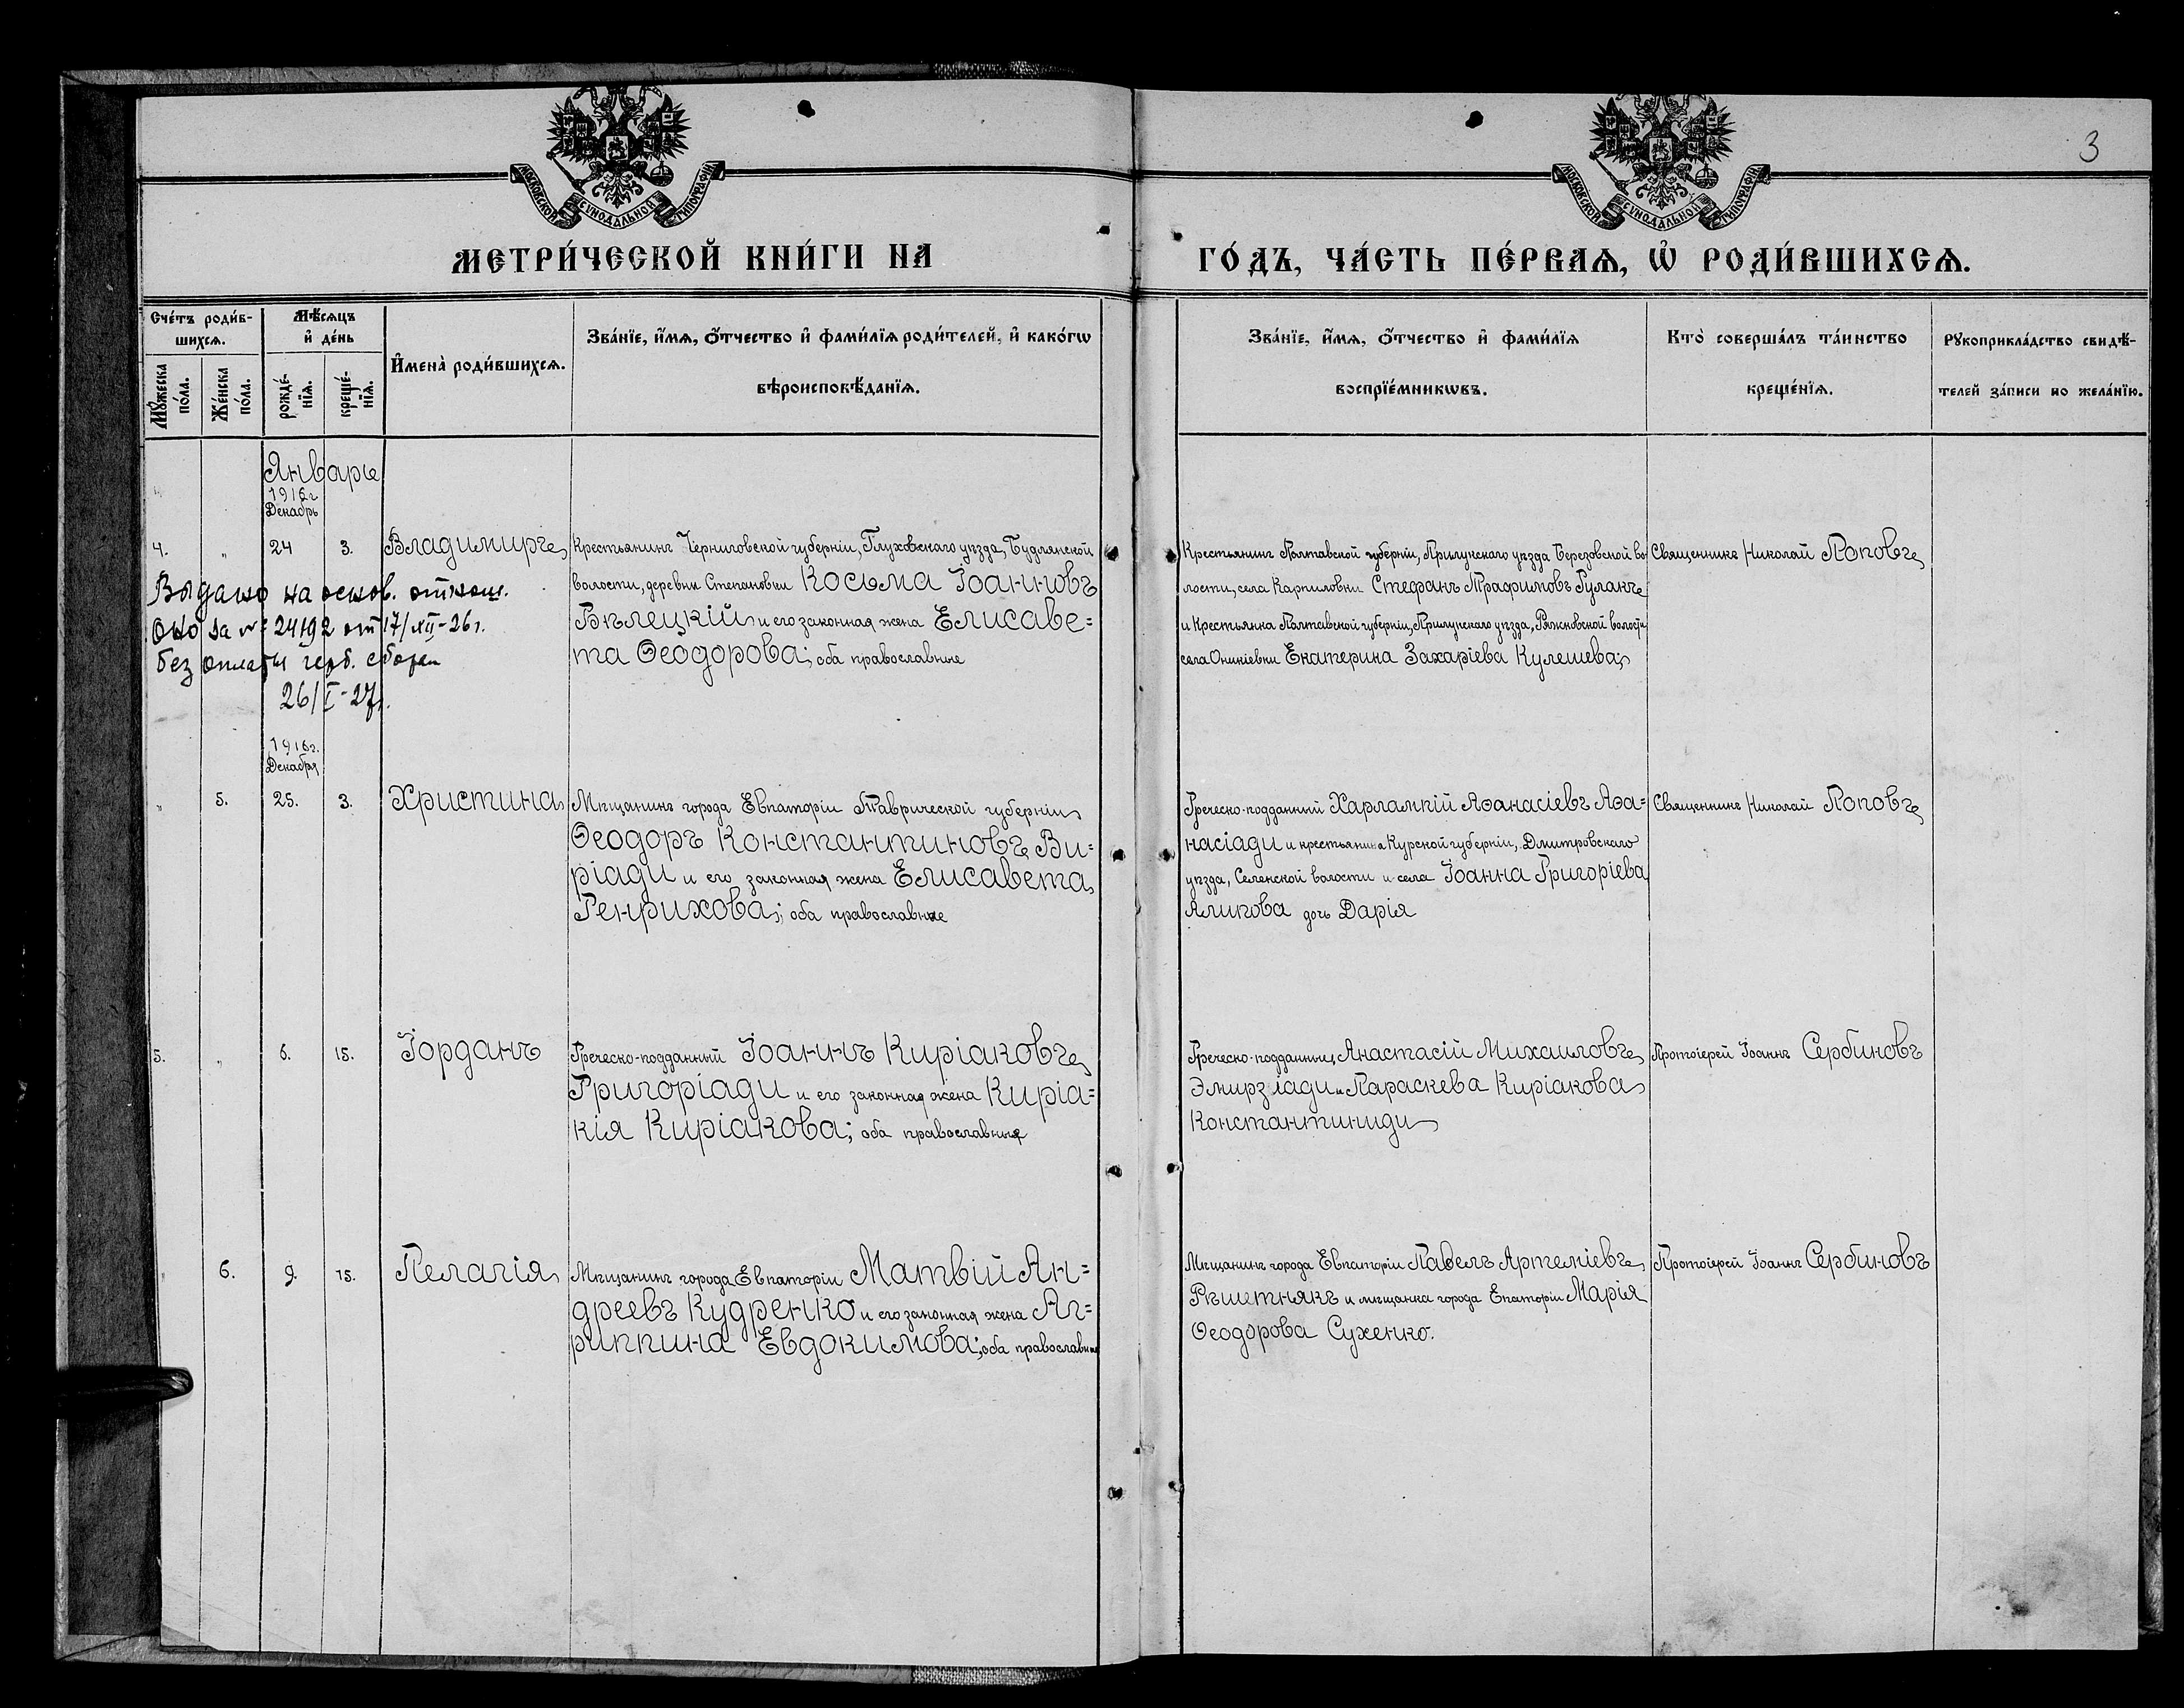 3
МОСКОВСКОЙ СУНОДАЛЬНОЙ ТИПОГРАФІИ
МОСКОВСКОЙ СУНОДАЛЬНОЙ ТИПОГРАФІИ
МЕТРИ́ЧЕСКОЙ КНИ́ГИ НА
ГО́ДЪ, ЧА́СТЬ ПЕ́РВАѦ, Ѡ҆ РОДИ́ВШИХСѦ.
Сче́тъ роди́в-
шихсѧ.
Мꙋ́жеска
по́ла.
Же́нска
по́ла.
Мѣ́сѧцъ
и҆ де́нь
рожде́-
нїѧ.
креще́-
нїѧ.
И҆мена̀ роди́вшихсѧ.
Зва́нїе, и҆́мѧ, о҆́тчество и҆ фами́лїѧ роди́телей, и҆ како́гѡ
вѣроисповѣ́данїѧ.
Зва́нїе, и҆́мѧ, о҆́тчество и҆ фами́лїѧ
воспрїе́мникѡвъ.
Кто̀ соверша́лъ та́инство
креще́нїѧ.
Рꙋкоприкла́дство свидѣ́-
телей за́писи по жела́нїю.
Январь
1916 г
Декабрь
4. " 24 3. Владиміръ
Крестьянинъ Черниговской губерніи, Глуховскаго уѣзда,
волости, деревни Степановки Косьма Іоанновъ
Бѣлецкій и его законная жена Елисаве=
та Ѳеодорова; оба православные
Крестьянинъ Полтавской губерніи, Прилукскаго уѣзда Березовской во
лости, села Карпиловки Стефанъ Трафимовъ Руланъ
и Крестьянка Полтавской губерніи, Прилукскаго уѣзда, волости
села Оникіевки Екатерина Захаріева Кулешева;
Священникъ Николай Поповъ
Выдано на основ. отнош.
ОКО за № 24192 от 17/XII-26 г.
без оплаты герб. сбора
26/I-27 г.
1916 г.
Декабря
" 5. 25. 3. Христина
Мѣщанинъ города Евпаторіи Таврической губерніи
Ѳеодоръ Константиновъ Ви=
ріади и его законная жена Елисавета
Генрихова; оба православные
Греческо-подданный Харлампій Аѳанасіевъ Аѳа=
насіади и крестьянина Курской губерніи, Дмитровскаго
уѣзда, Селенской волости и села Іоанна Григоріева
Аликова дочь Дарія
Священникъ Николай Поповъ
5. " 6. 15. Іорданъ
Греческо-подданный Іоаннъ Киріаковъ
Григоріади и его законная жена Киріа=
кія Киріакова; оба православные
Греческо-подданные, Анастасій Михаиловъ
Эмирзіади и Параскева Киріакова
Константиниди
Протоіерей Іоаннъ Сербиновъ
6. 9. 15. Пелагія
Мѣщанинъ города Евпаторіи Матвій Ан=
дреевъ Кудренко и его законная жена Аг=
риппина Евдокимова; оба православные
Мѣщанинъ города Евпаторіи Павелъ Артеміевъ
Рѣшетнякъ и мѣщанка города Епаторіи Марія
Ѳеодорова Сухенко.
Протоіерей Іоаннъ Сербиновъ